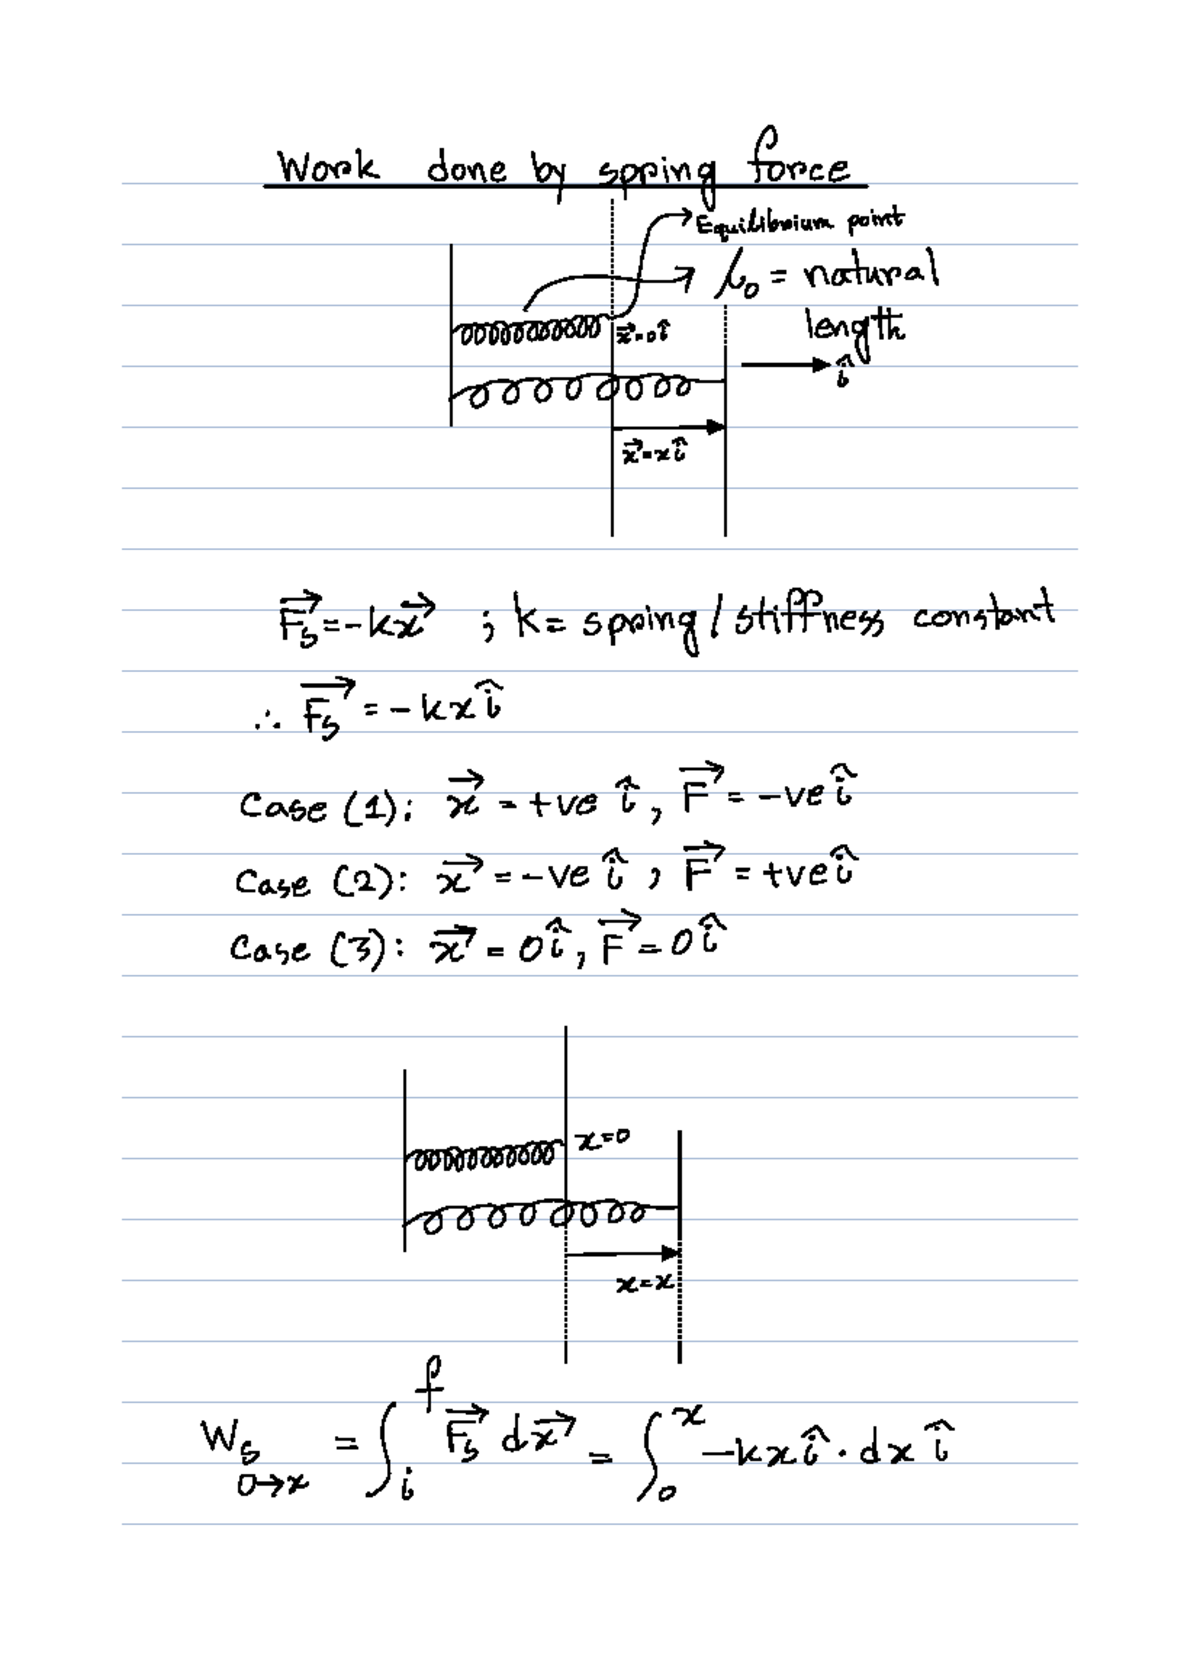 Work done by spring force
Equilibrium point
l₀ = natural
length
x⃗=0î
î
x⃗=xî
F⃗s=-kx⃗ ; k= spring/stiffness constant
∴ F⃗s = -kxî
Case (1): x⃗ = +ve î, F⃗ = -ve î
Case (2): x⃗ = -ve î, F⃗ = +ve î
Case (3): x⃗ = 0î, F⃗ = 0î
x=0
x=x
W_s 0→x = ∫_i^f F⃗s dx⃗ = ∫_0^x -kxî · dx î